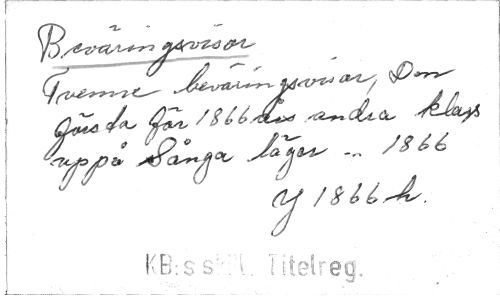 Beväringsvisor
Tvenne beväringsvisor, Den
första för 1866 års andra klass
uppå Sånga läger ... 1866
Y 1866 h.
KB:s Titelreg.